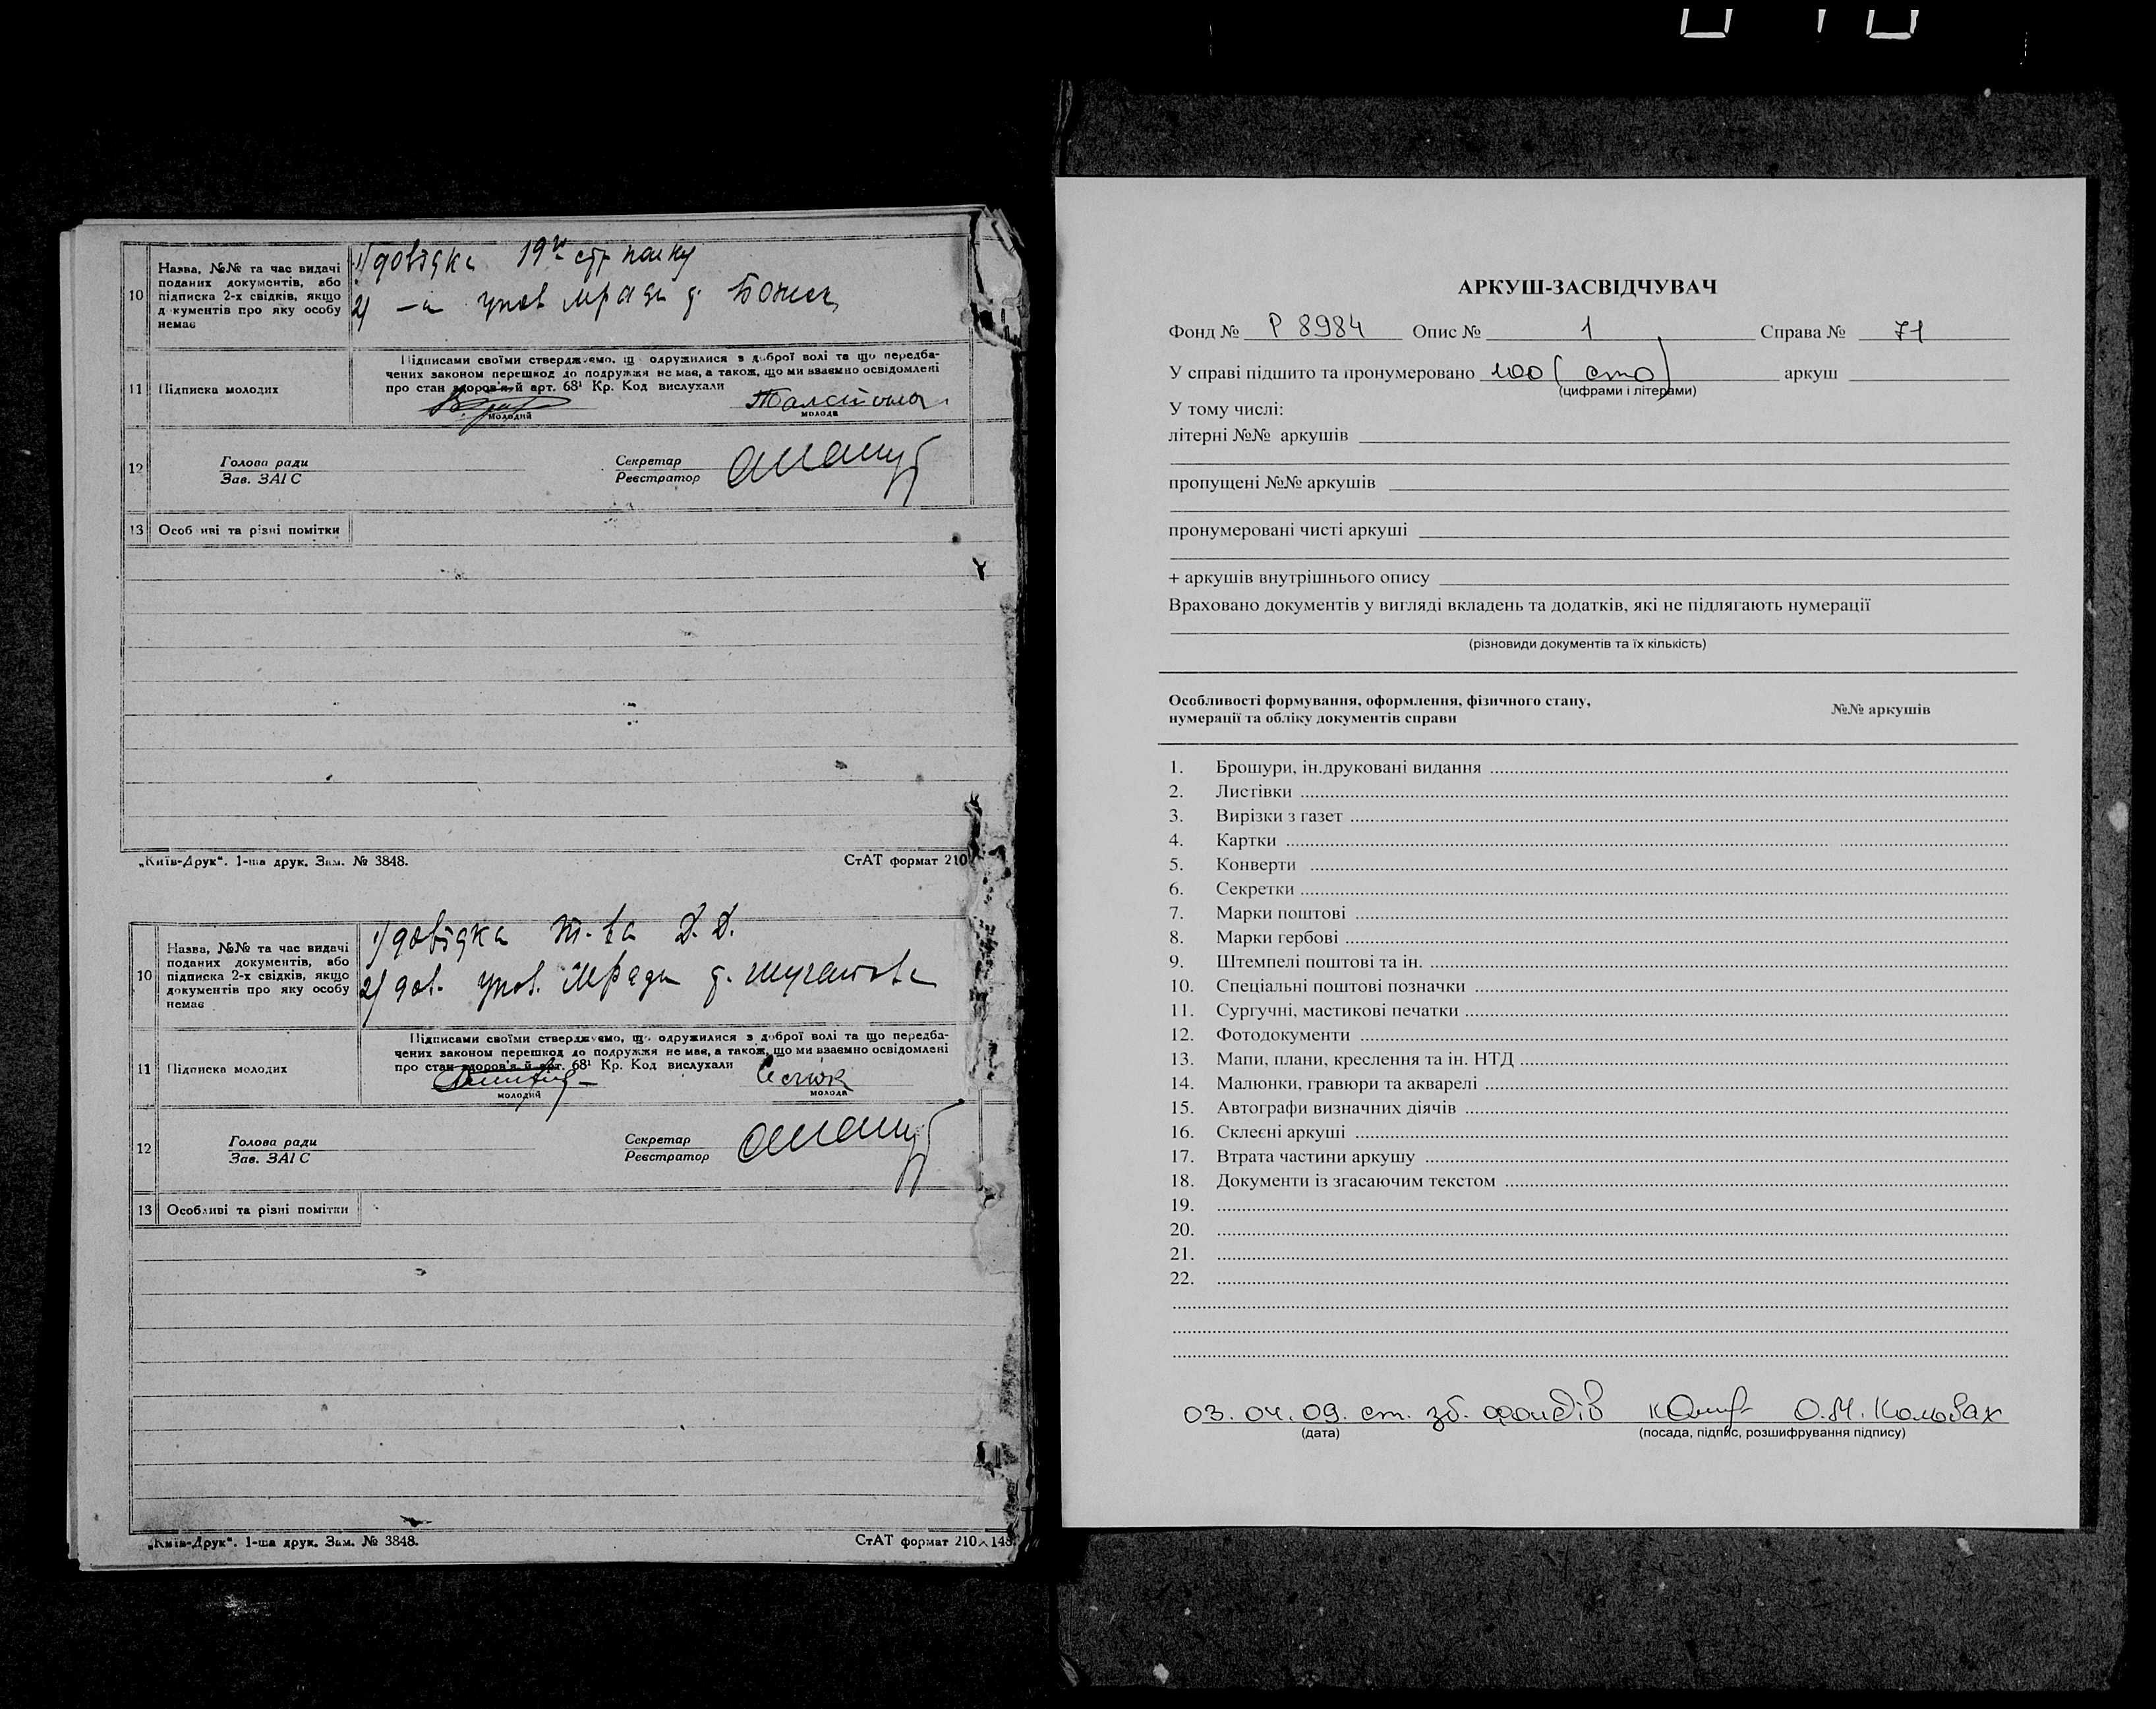 10
Назва, №№ та час видачі
поданих документів, або
підписка 2-х свідків, якщо
д кументів про яку особу
немає
1) довідка 19 стр полку
2)
11
Підписка молодих
Підписами своїми стверджуємо, що одружилися з доброї волі та що передба-
чених законом перешкод до подружжя не має, а також, що ми взаємно освідомлені
про стан здоров'я й арт. 68¹ Кр. Код вислухали
молодий
молода
12
Голова ради
Зав. ЗАГС
Секретар
Реєстратор
13
Особ иві та різні помітки
„Київ-Друк“. 1-ша друк. Зам. № 3848.
СтАТ формат 210
10
Назва, №№ та час видачі
поданих документів, або
підписка 2-х свідків, якщо
документів про яку особу
немає
1) довідка
2) дов.
11
Підписка молодих
Підписами своїми стверджуємо, що одружилися з доброї волі та що передба-
чених законом перешкод до подружжя не має, а також, що ми взаємно освідомлені
про стан здоров'я й арт. 68¹ Кр. Код вислухали
молодий
молода
12
Голова ради
Зав. ЗАГС
Секретар
Реєстратор
13
Особливі та різні помітки
„Київ-Друк“. 1-ша друк. Зам. № 3848.
СтАТ формат 210×148
АРКУШ-ЗАСВІДЧУВАЧ
Фонд № Р 8984 Опис № 1 Справа № 71
У справі підшито та пронумеровано 100 (сто) аркуш
(цифрами і літерами)
У тому числі:
літерні №№ аркушів
пропущені №№ аркушів
пронумеровані чисті аркуші
+ аркушів внутрішнього опису
Враховано документів у вигляді вкладень та додатків, які не підлягають нумерації
(різновиди документів та їх кількість)
Особливості формування, оформлення, фізичного стану,
нумерації та обліку документів справи
№№ аркушів
1. Брошури, ін.друковані видання
2. Листівки
3. Вирізки з газет
4. Картки
5. Конверти
6. Секретки
7. Марки поштові
8. Марки гербові
9. Штемпелі поштові та ін.
10. Спеціальні поштові позначки
11. Сургучні, мастикові печатки
12. Фотодокументи
13. Мапи, плани, креслення та ін. НТД
14. Малюнки, гравюри та акварелі
15. Автографи визначних діячів
16. Склеєні аркуші
17. Втрата частини аркушу
18. Документи із згасаючим текстом
19.
20.
21.
22.
03.04.09. ст. зб. фондів О.М.
(дата)
(посада, підпис, розшифрування підпису)